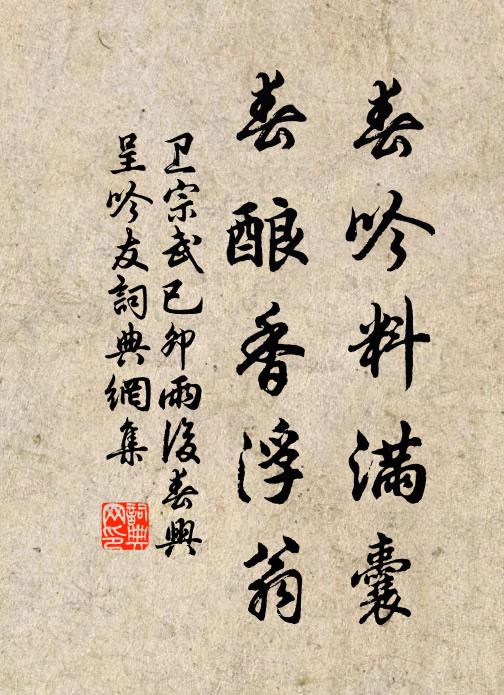 春吟料满囊
春酿香浮瓮
卫宗武己卯雨後春興
呈吟友詞典網集
詞典網印